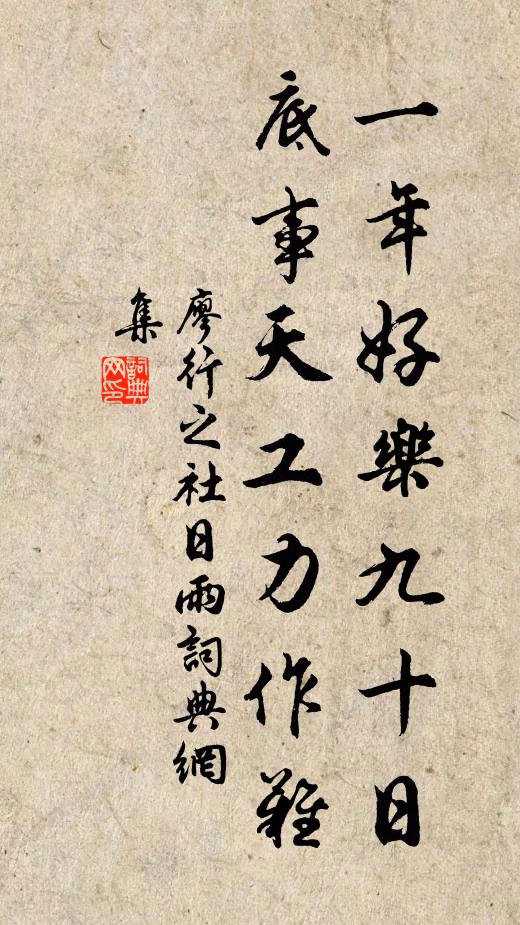 一年好樂九十日
底事天工力作難
廖行之社日雨詞典網
集
詞典
網印